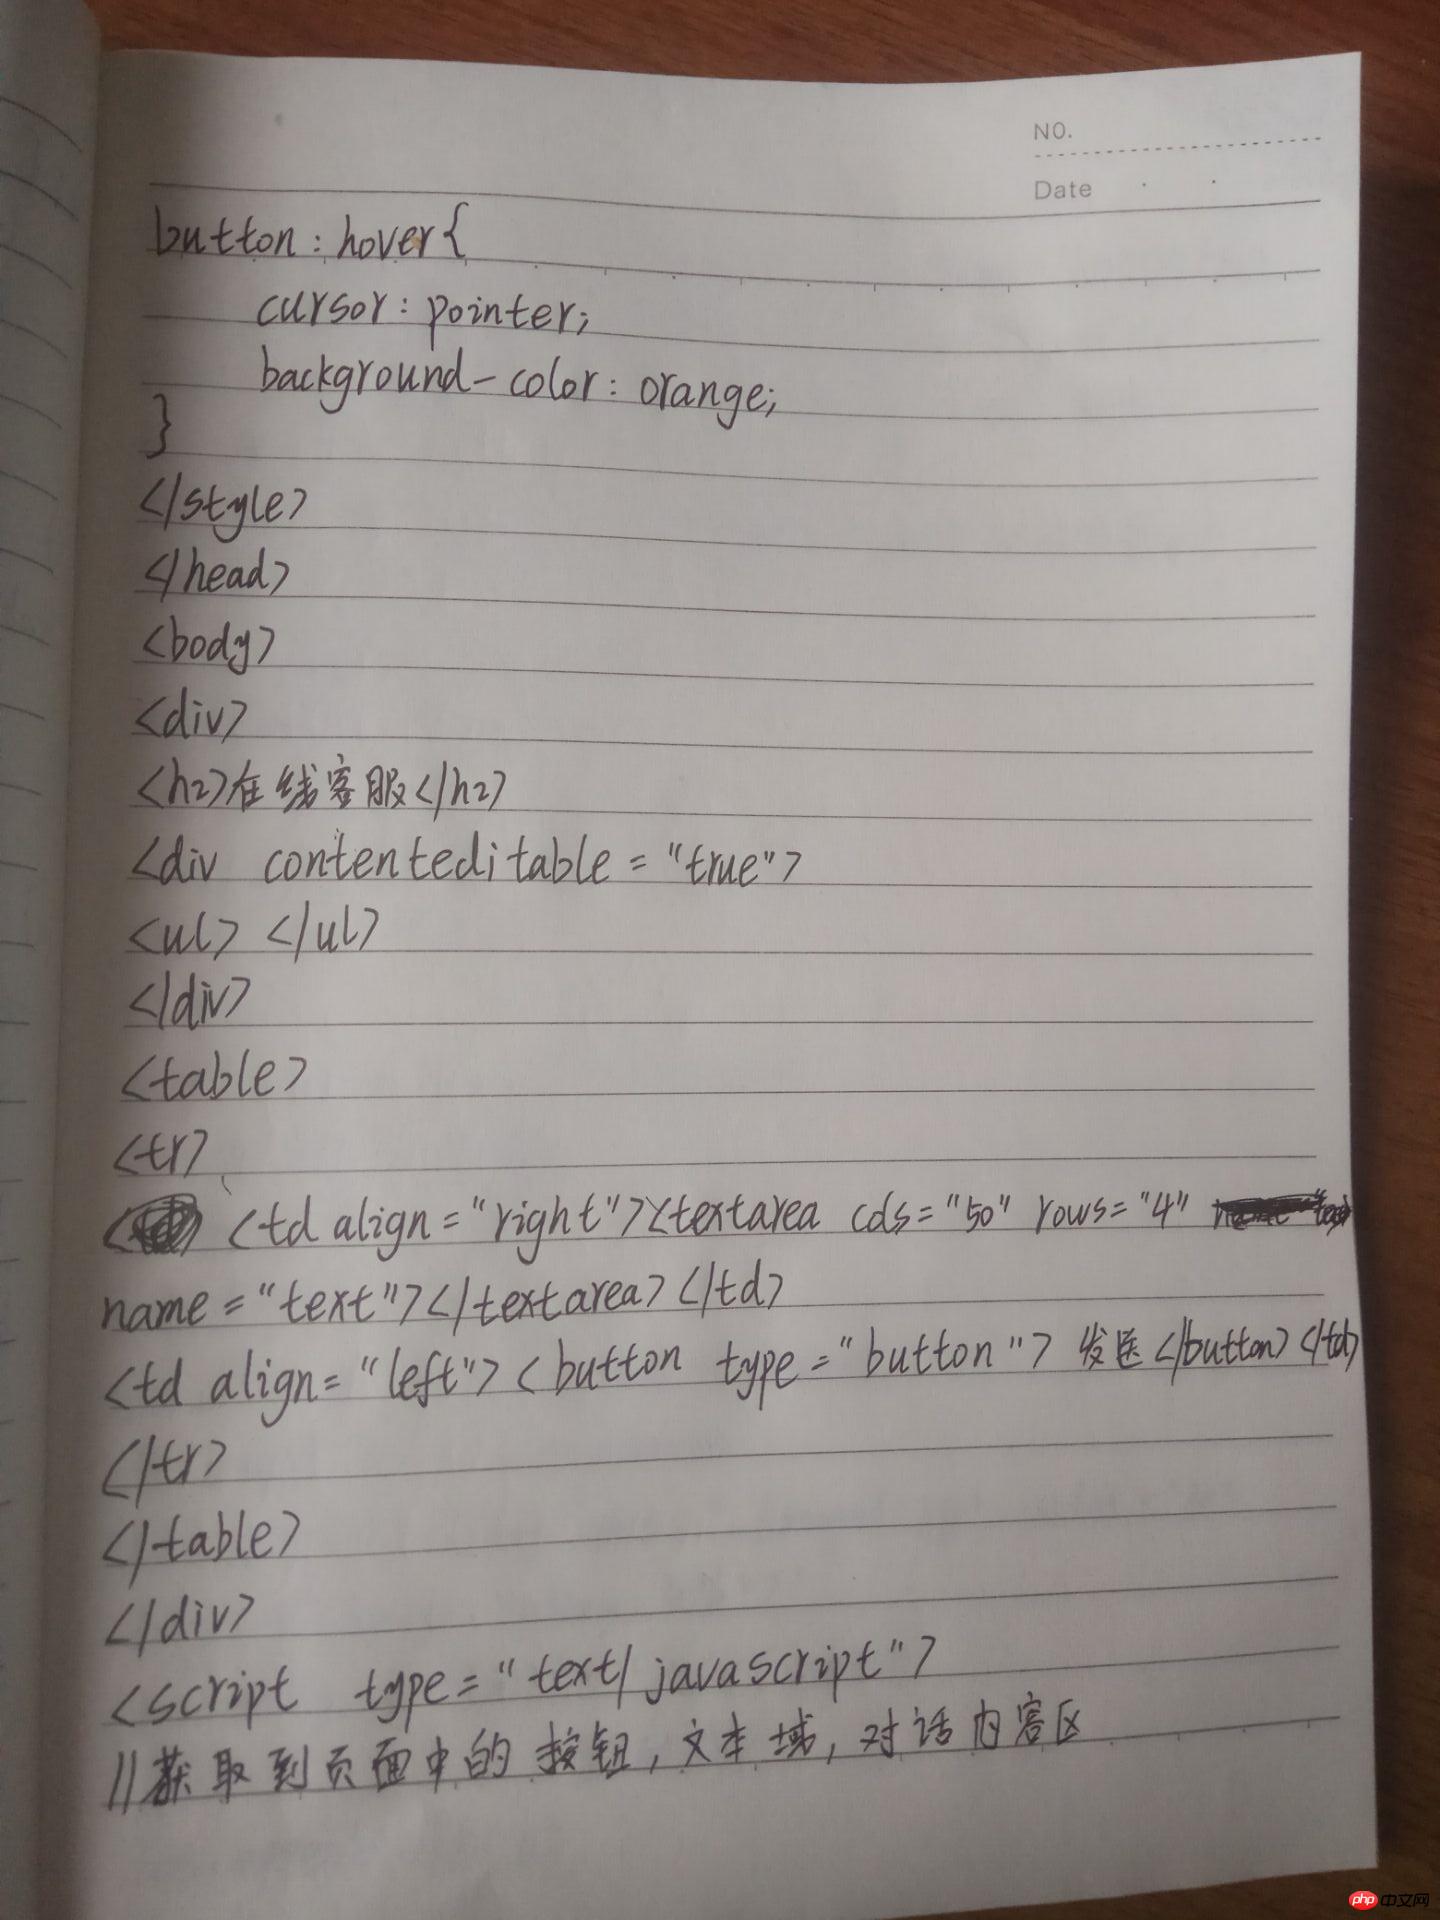 NO.
Date
button:hover{
cursor:pointer;
background-color:orange;
}
</style>
</head>
<body>
<div>
<h2>在线客服</h2>
<div contenteditable="true">
<ul></ul>
</div>
<table>
<tr>
<td align="right"><textarea cols="50" rows="4"
name="text"></textarea></td>
<td align="left"><button type="button">发送</button></td>
</tr>
</table>
</div>
<script type="text/javascript">
//获取到页面中的按钮,文本域,对话内容区
php 中文网